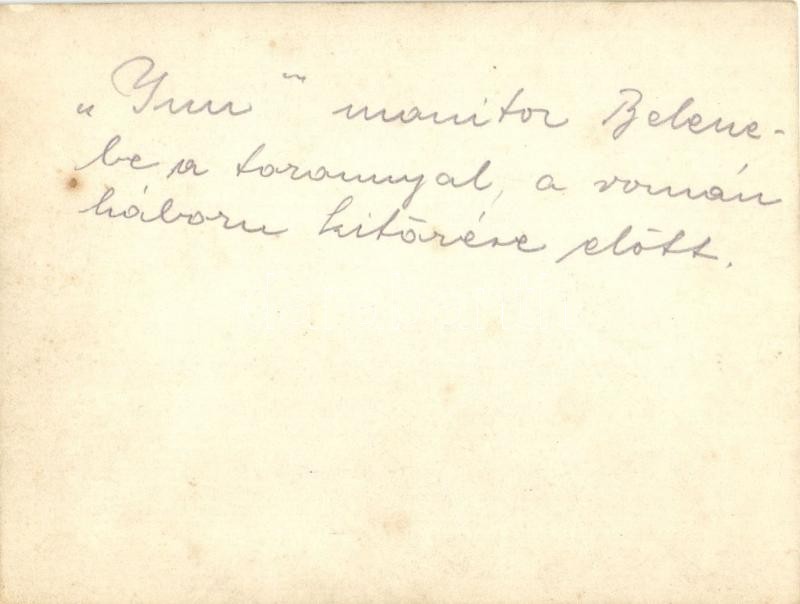 „Inn" monitor Belene-
be a toronnyal, a román
háboru kitörése előtt.